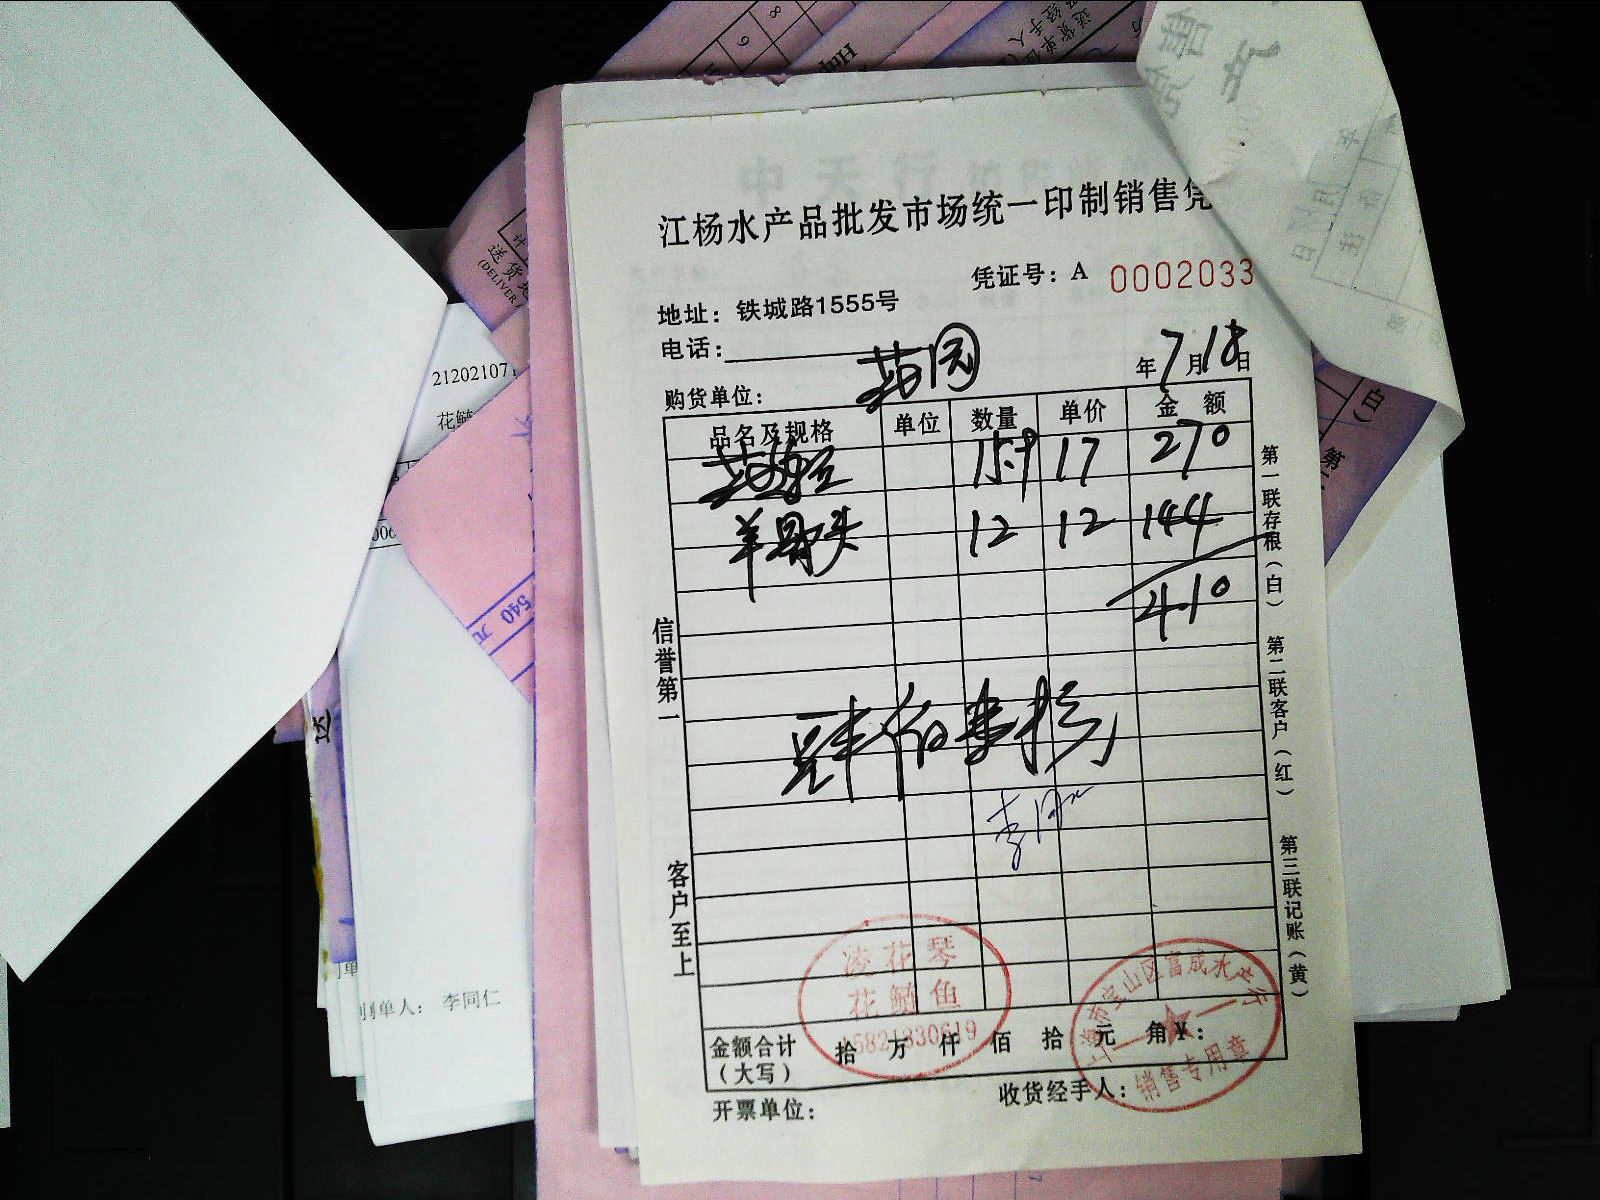 江杨水产品批发市场统一印制销售凭
凭证号：A 0002033
地址：铁城路1555号
电话：
购货单位：
年7月18日
品名及规格 单位 数量 单价 金额
15.9 17 270
羊骨头 12 12 144
410
肆佰壹拾元
信誉第一
客户至上
第一联存根（白）
第二联客户（红）
第三联记账（黄）
凌花琴
花鲢鱼
15821830619
上海市宝山区富成水产行
销售专用章
金额合计（大写） 拾 万 仟 佰 拾 元 角 ¥：
开票单位：
收货经手人：
21202107
花鲢
540 元
制单人： 李同仁